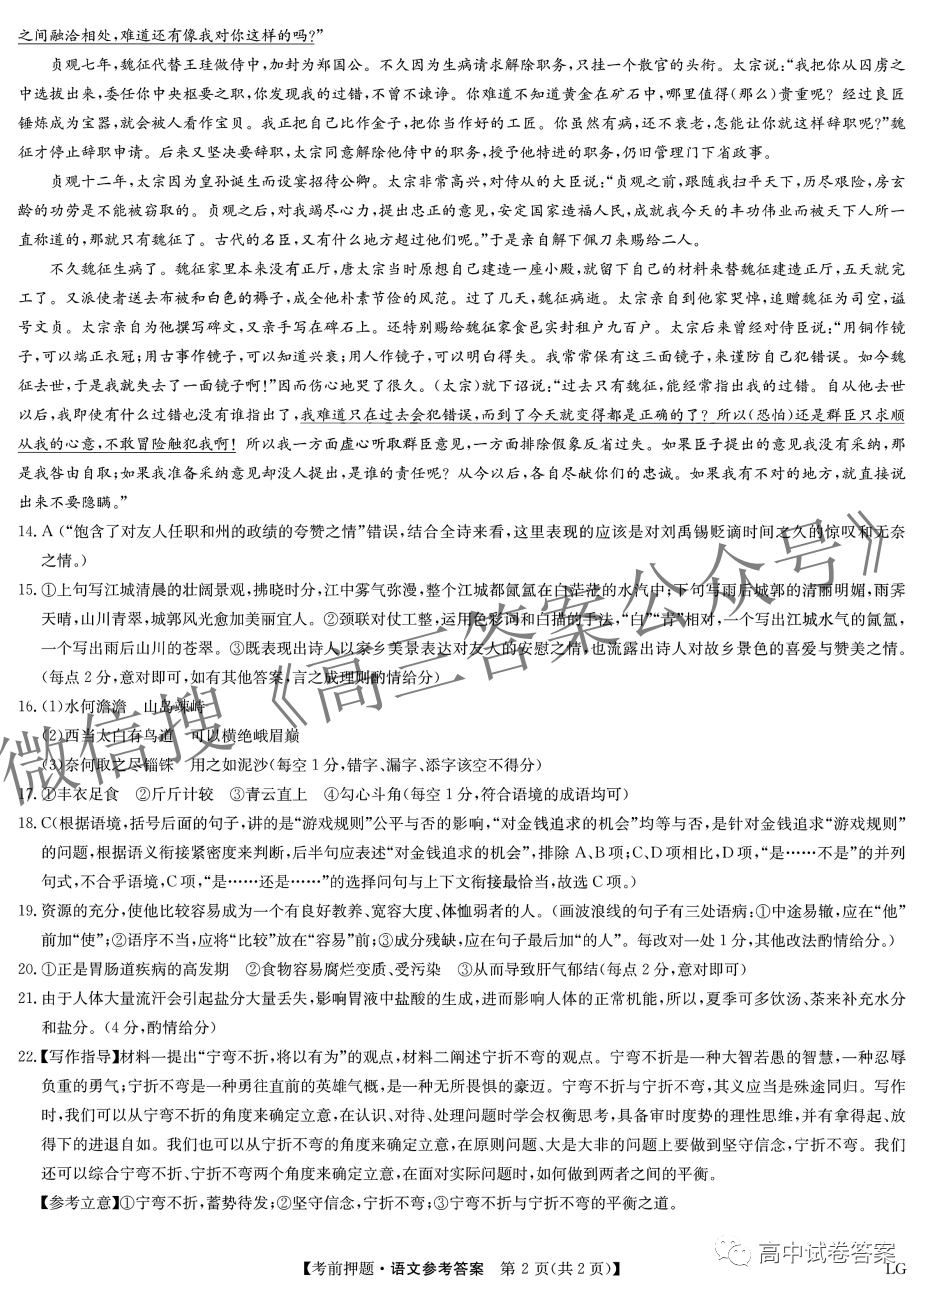 之间融洽相处,难道还有像我对你这样的吗?”
贞观七年,魏征代替王珪做侍中,加封为郑国公。不久因为生病请求解除职务,只挂一个散官的头衔。太宗说:“我把你从囚虏之
中选拔出来,委任你中央枢要之职,你发现我的过错,不曾不谏诤。你难道不知道黄金在矿石中,哪里值得(那么)贵重呢?经过良匠
锤炼成为宝器,就会被人看作宝贝。我正把自己比作金子,把你当作好的工匠。你虽然有病,还不衰老,怎能让你就这样辞职呢?”魏
征才停止辞职申请。后来又坚决要辞职,太宗同意解除他侍中的职务,授予他特进的职务,仍旧管理门下省政事。
贞观十二年,太宗因为皇孙诞生而设宴招待公卿。太宗非常高兴,对侍从的大臣说:“贞观之前,跟随我扫平天下,历尽艰险,房玄
龄的功劳是不能被窃取的。贞观之后,对我竭尽心力,提出忠正的意见,安定国家造福人民,成就我今天的丰功伟业而被天下人所一
直称道的,那就只有魏征了。古代的名臣,又有什么地方超过他们呢。”于是亲自解下佩刀来赐给二人。
不久魏征生病了。魏征家里本来没有正厅,唐太宗当时原想自己建造一座小殿,就留下自己的材料来替魏征建造正厅,五天就完
工了。又派使者送去布被和白色的褥子,成全他朴素节俭的风范。过了几天,魏征病逝。太宗亲自到他家哭悼,追赠魏征为司空,谥
号文贞。太宗亲自为他撰写碑文,又亲手写在碑石上。还特别赐给魏征家食邑实封租户九百户。太宗后来曾经对侍臣说:“用铜作镜
子,可以端正衣冠;用古事作镜子,可以知道兴衰;用人作镜子,可以明白得失。我常常保有这三面镜子,来谨防自己犯错误。如今魏
征去世,于是我就失去了一面镜子啊!”因而伤心地哭了很久。(太宗)就下诏说:“过去只有魏征,能经常指出我的过错。自从他去世
以后,我即使有什么过错也没有谁指出了,我难道只在过去会犯错误,而到了今天就变得都是正确的了?所以(恐怕)还是群臣只求顺
从我的心意,不敢冒险触犯我啊!所以我一方面虚心听取群臣意见,一方面排除假象反省过失。如果臣子提出的意见我没有采纳,那
是我咎由自取;如果我准备采纳意见却没人提出,是谁的责任呢?从今以后,各自尽献你们的忠诚。如果我有不对的地方,就直接说
出来不要隐瞒。”
14. A(“饱含了对友人任职和州的政绩的夸赞之情”错误,结合全诗来看,这里表现的应该是对刘禹锡贬谪时间之久的惊叹和无奈
之情。)
15. ①上句写江城清晨的壮阔景观,拂晓时分,江中雾气弥漫,整个江城都氤氲在白茫茫的水汽中;下句写雨后城郭的清丽明媚,雨霁
天晴,山川青翠,城郭风光愈加美丽宜人。②颈联对仗工整,运用色彩词和白描的手法,“白”“青”相对,一个写出江城水气的氤氲,
一个写出雨后山川的苍翠。③既表现出诗人以家乡美景表达对友人的安慰之情,也流露出诗人对故乡景色的喜爱与赞美之情。
(每点2分,意对即可,如有其他答案,言之成理则酌情给分)
16. (1)水何澹澹 山岛竦峙
(2)西当太白有鸟道 可以横绝峨眉巅
(3)奈何取之尽锱铢 用之如泥沙(每空1分,错字、漏字、添字该空不得分)
17. ①丰衣足食 ②斤斤计较 ③青云直上 ④勾心斗角(每空1分,符合语境的成语均可)
18. C(根据语境,括号后面的句子,讲的是“游戏规则”公平与否的影响,“对金钱追求的机会”均等与否,是针对金钱追求“游戏规则”
的问题,根据语义衔接紧密度来判断,后半句应表述“对金钱追求的机会”,排除A、B项;C、D项相比,D项,“是……不是”的并列
句式,不合乎语境,C项,“是……还是……”的选择问句与上下文衔接最恰当,故选C项。)
19. 资源的充分,使他比较容易成为一个有良好教养、宽容大度、体恤弱者的人。(画波浪线的句子有三处语病:①中途易辙,应在“他”
前加“使”;②语序不当,应将“比较”放在“容易”前;③成分残缺,应在句子最后加“的人”。每改对一处1分,其他改法酌情给分。)
20. ①正是胃肠道疾病的高发期 ②食物容易腐烂变质、受污染 ③从而导致肝气郁结(每点2分,意对即可)
21. 由于人体大量流汗会引起盐分大量丢失,影响胃液中盐酸的生成,进而影响人体的正常机能,所以,夏季可多饮汤、茶来补充水分
和盐分。(4分,酌情给分)
22. 【写作指导】材料一提出“宁弯不折,将以有为”的观点,材料二阐述宁折不弯的观点。宁弯不折是一种大智若愚的智慧,一种忍辱
负重的勇气;宁折不弯是一种勇往直前的英雄气概,是一种无所畏惧的豪迈。宁弯不折与宁折不弯,其义应当是殊途同归。写作
时,我们可以从宁弯不折的角度来确定立意,在认识、对待、处理问题时学会权衡思考,具备审时度势的理性思维,并有拿得起、放
得下的进退自如。我们也可以从宁折不弯的角度来确定立意,在原则问题、大是大非的问题上要做到坚守信念,宁折不弯。我们
还可以综合宁弯不折、宁折不弯两个角度来确定立意,在面对实际问题时,如何做到两者之间的平衡。
【参考立意】①宁弯不折,蓄势待发;②坚守信念,宁折不弯;③宁弯不折与宁折不弯的平衡之道。
微信搜《高三答案公众号》
高中试卷答案
【考前押题·语文参考答案 第2页(共2页)】 LG